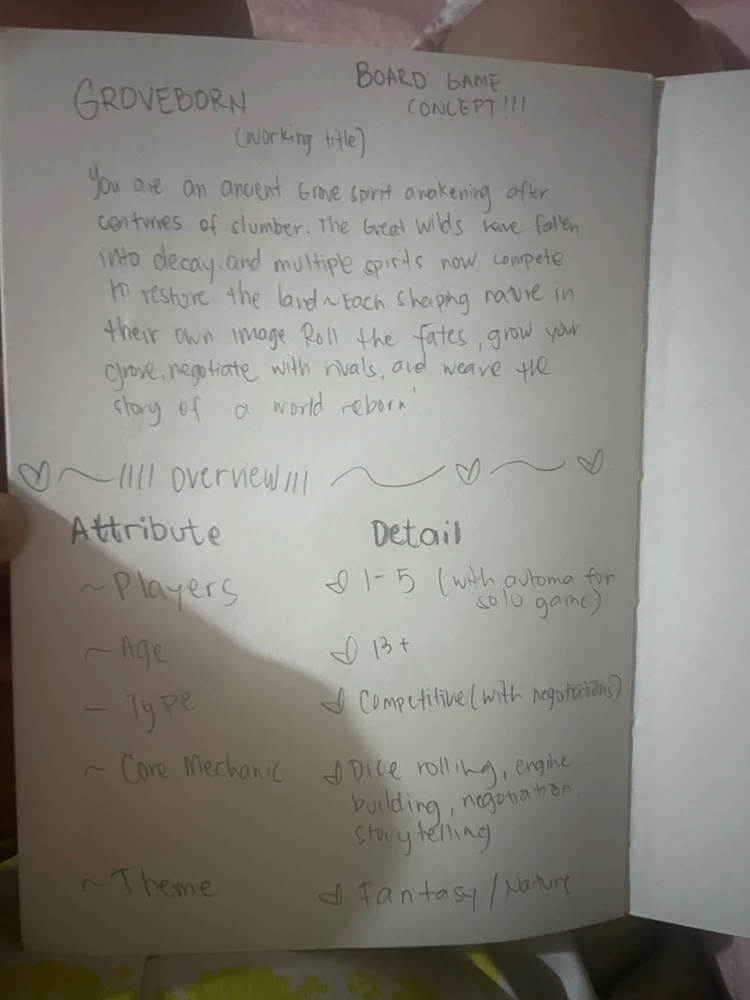 GROVEBORN
BOARD GAME
CONCEPT!!!
(working title)
You are an ancient Grove spirit awakening after
centuries of slumber. The Great Wilds have fallen
into decay, and multiple spirits now compete
to restore the land ~ Each shaping nature in
their own image. Roll the fates, grow your
grove, negotiate with rivals, and weave the
story of a world reborn'
♡~//// overview/// ~ ♡ ~ ♡
Attribute Detail
~ Players 1-5 (with automa for
solo game)
~ Age 13+
— Type Competitive (with negotiations)
~ Core Mechanic Dice rolling, engine
building, negotiation,
storytelling
~ Theme Fantasy/Nature